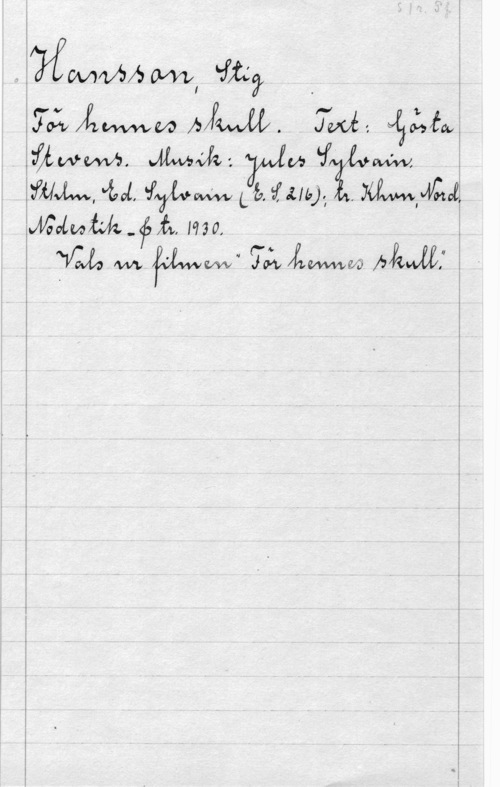 Hansson, Stig
För hennes skull. Text: Gösta
Stevens. Musik: Jules Sylvain.
Sthlm, Ed. Sylvain (E. S. 216); tr. Khvn, Nord.
Nodestik- & tr. 1930.
Vals ur filmen "För hennes skull."